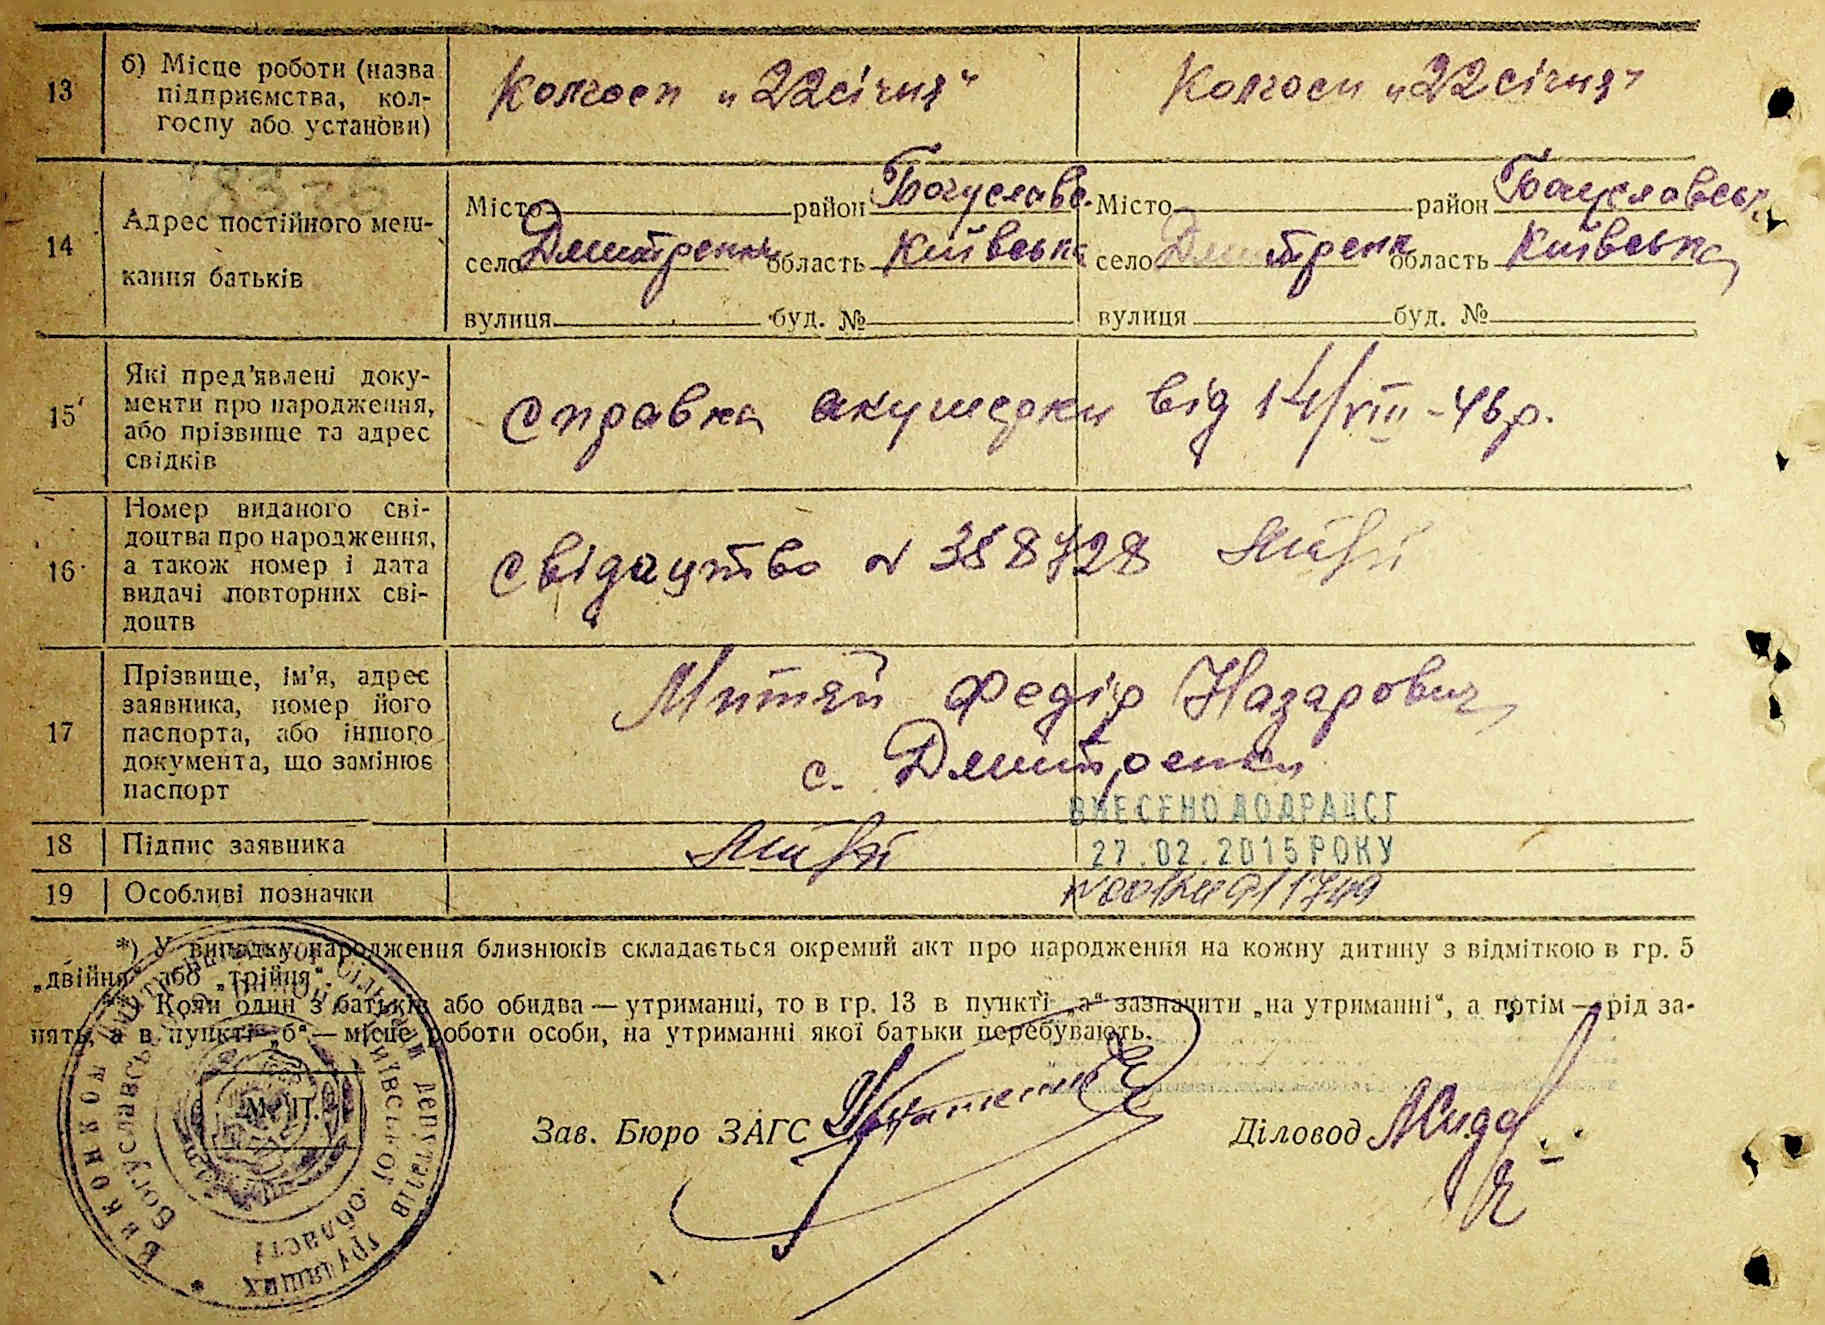 13 б) Місце роботи (назва підприємства, колгоспу або установи) Колгосп „22 січня“ Колгосп „22 січня“
14 Адрес постійного мешкання батьків
Місто район Богуславс. Місто район Богуславськ.
село Дмитренки область Київська село Дмитренки область Київська
вулиця буд. № вулиця буд. №
15 Які пред'явлені документи про народження, або прізвище та адрес свідків Справка акушерки від 14/VIII-46р.
16 Номер виданого свідоцтва про народження, а також номер і дата видачі повторних свідоцтв
17 Прізвище, ім'я, адрес заявника, номер його паспорта, або іншого документа, що замінює паспорт Митяй Федір Назарович
с. Дмитренки
ВНЕСЕНО ДО ДРАЦСГ
18 Підпис заявника
27.02.2015 РОКУ
19 Особливі позначки
*) У випадку народження близнюків складається окремий акт про народження на кожну дитину з відміткою в гр. 5
„двійня“ або „трійня“.
Коли один з батьків або обидва — утриманці, то в гр. 13 в пункті „а“ зазначити „на утриманні“, а потім — рід за-
нять, а в пункті „б“ — місце роботи особи, на утриманні якої батьки перебувають.
М. П.
Зав. Бюро ЗАГС
Діловод
Виконком
Богуславської
депутатів трудящих
Київської області